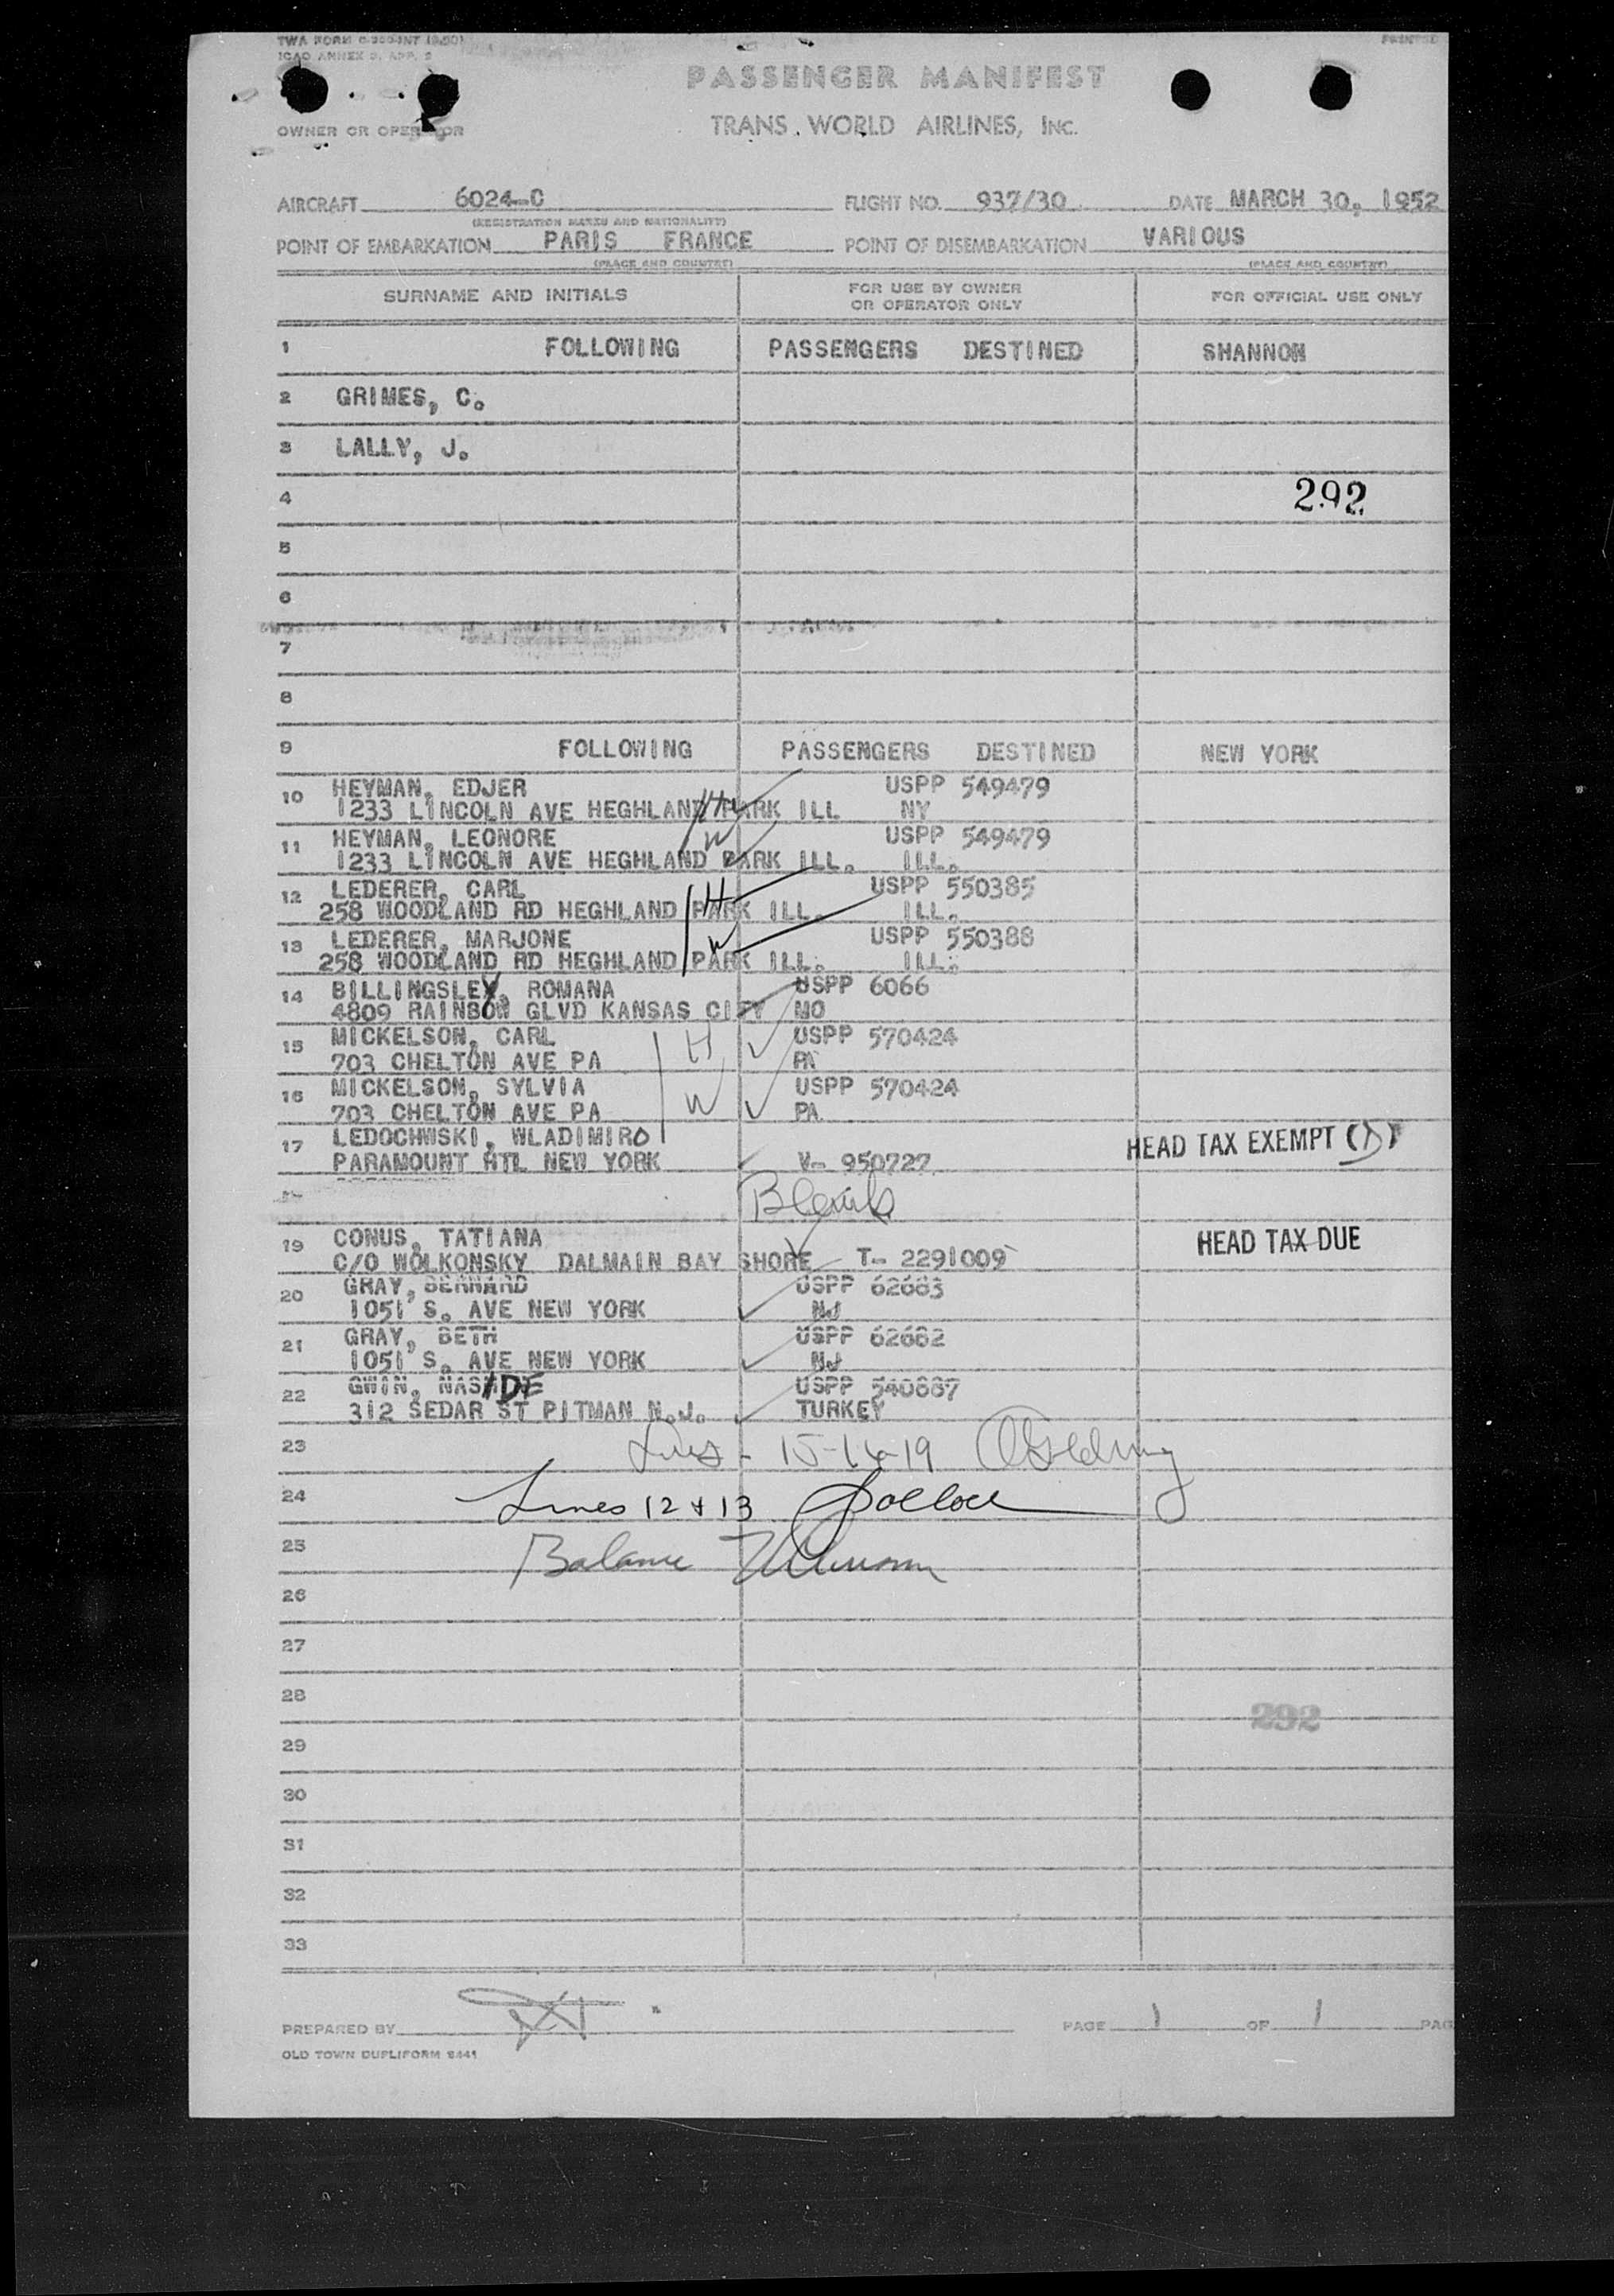 TWA FORM
ICAO ANNEX 9, APP. 2
PRINTED
PASSENGER MANIFEST
OWNER OR OPERATOR
TRANS WORLD AIRLINES, INC.
AIRCRAFT 6024-C FLIGHT NO. 937/30 DATE MARCH 30, 1952
(REGISTRATION MARKS AND NATIONALITY)
POINT OF EMBARKATION PARIS FRANCE POINT OF DISEMBARKATION VARIOUS
(PLACE AND COUNTRY) (PLACE AND COUNTRY)
SURNAME AND INITIALS FOR USE BY OWNER OR OPERATOR ONLY FOR OFFICIAL USE ONLY
1 FOLLOWING PASSENGERS DESTINED SHANNON
2 GRIMES, C.
3 LALLY, J.
4 292
5
6
7
8
9 FOLLOWING PASSENGERS DESTINED NEW YORK
10 HEYMAN, EDJER H USPP 549479
1233 LINCOLN AVE HEGHLAND PARK ILL NY
11 HEYMAN, LEONORE W USPP 549479
1233 LINCOLN AVE HEGHLAND PARK ILL. ILL.
12 LEDERER, CARL H USPP 550385
258 WOODLAND RD HEGHLAND PARK ILL. ILL.
13 LEDERER, MARJONE W USPP 550388
258 WOODLAND RD HEGHLAND PARK ILL. ILL.
14 BILLINGSLEY, ROMANA USPP 6066
4809 RAINBOW GLVD KANSAS CITY MO
15 MICKELSON, CARL H USPP 570424
703 CHELTON AVE PA PA
16 MICKELSON, SYLVIA W USPP 570424
703 CHELTON AVE PA PA.
17 LEDOCHWSKI, WLADIMIRO HEAD TAX EXEMPT
PARAMOUNT HTL NEW YORK V- 950727
Blank
19 CONUS, TATIANA HEAD TAX DUE
C/O WOLKONSKY DALMAIN BAY SHORE T- 2291009
20 GRAY, BERNARD USPP 62683
1051 S. AVE NEW YORK NJ
21 GRAY, BETH USPP 62682
1051 S. AVE NEW YORK NJ
22 GWIN, NASIDE USPP 540887
312 SEDAR ST PITMAN N.J. TURKEY
23 15-16-19
24 Lines 12 + 13
25 Balance
26
27
28
292
29
30
31
32
33
PREPARED BY PAGE 1 OF 1 PAG
OLD TOWN DUPLIFORM 8441